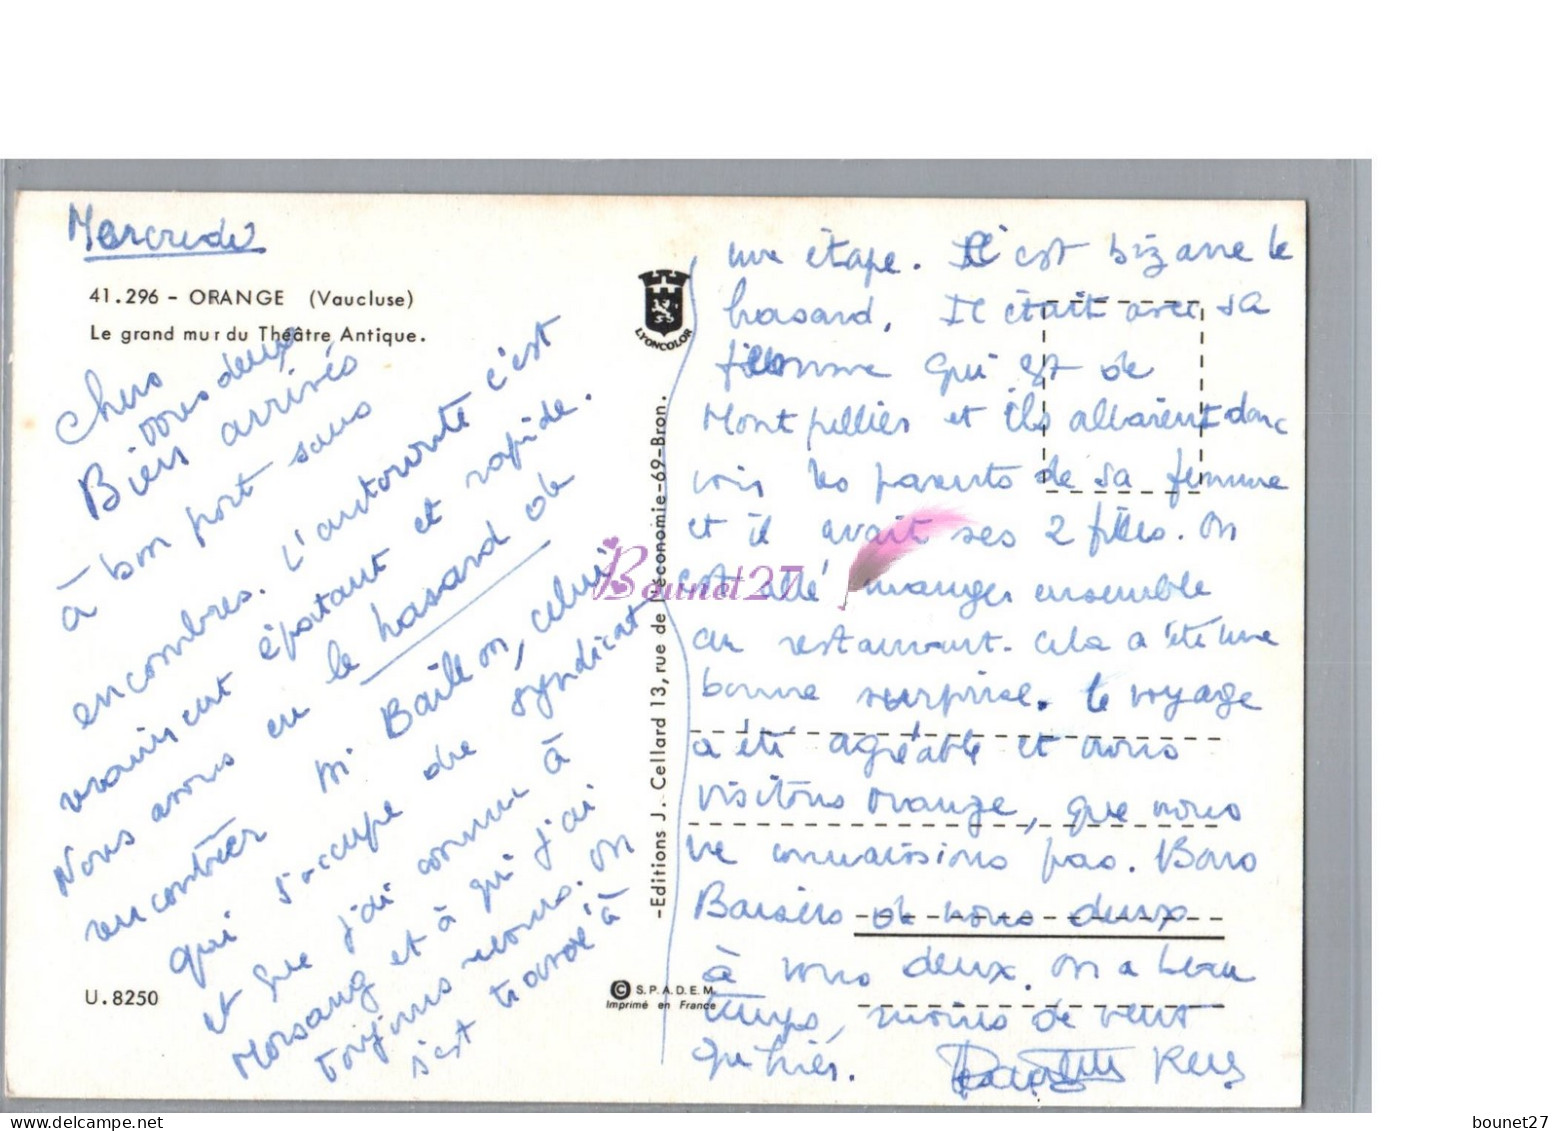 Mercredi
41.296 - ORANGE (Vaucluse)
Le grand mur du Théâtre Antique.
Chers
vous deux,
Bien arrivés
à bon port sans
encombres. L'autoroute c'est
vraiment épatant et rapide.
Nous avons eu le hasard de
rencontrer Mr Baillon, celui
qui s'occupe du syndicat
et que j'ai connu à
Morsang et à qui j'ai
toujours recours. On
s'est trouvé à
U.8250
LYONCOLOR
-Editions J. Cellard 13, rue de l'économie-69-Bron.
© S.P.A.D.E.M.
Imprimé en France
une étape. C'est bizarre le
hasard. Il était avec sa
femme qui est de
Montpellier et ils allaient donc
voir les parents de sa femme
et il avait ses 2 filles. On
est allé manger ensemble
au restaurant. Cela a été une
bonne surprise. Le voyage
a été agréable et nous
visitons Orange, que nous
ne connaissions pas. Bons
Baisers de nous deux
à vous deux. On a beau
temps, moins de vent
qu'hier.
Bounet27
bounet27